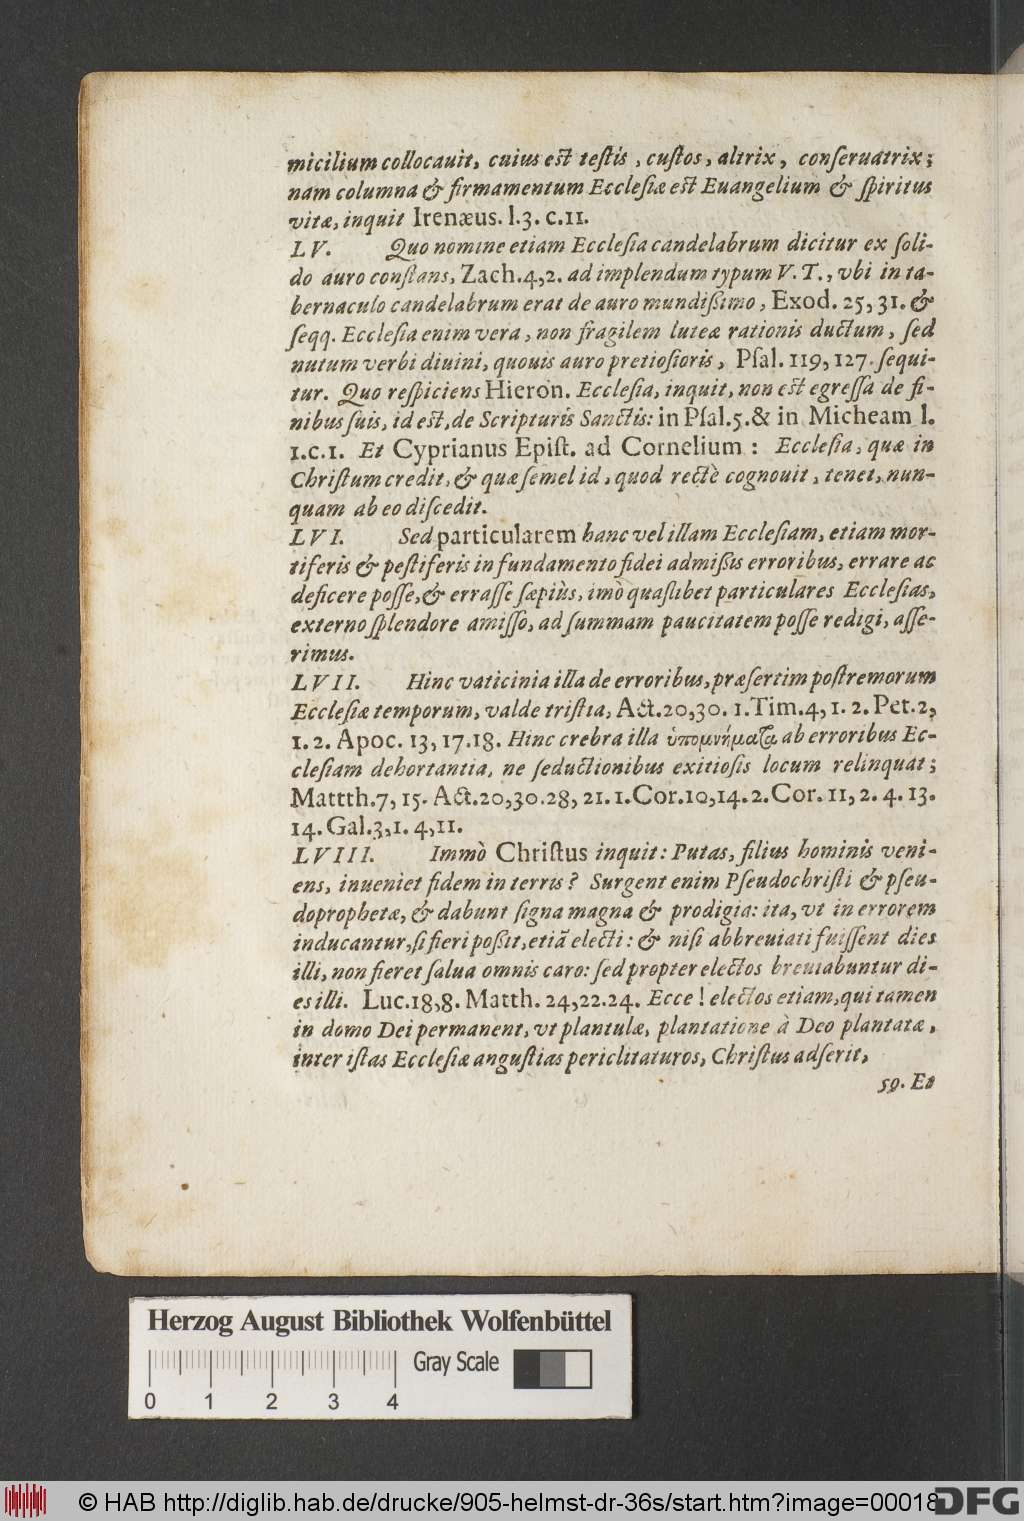 micilium collocauit, cuius est testis, custos, altrix, conseruatrix;
nam columna & firmamentum Ecclesiæ est Euangelium & spiritus
vitæ, inquit Irenæus. l.3. c.11.
LV. Quo nomine etiam Ecclesia candelabrum dicitur ex soli-
do auro constans, Zach.4,2. ad implendum typum V.T., vbi in ta-
bernaculo candelabrum erat de auro mundißimo, Exod. 25, 31. &
seqq. Ecclesia enim vera, non fragilem luteæ rationis ductum, sed
nutum verbi diuini, quouis auro pretiosioris, Psal. 119, 127. sequi-
tur. Quo respiciens Hieron. Ecclesia, inquit, non est egressa de fi-
nibus suis, id est, de Scripturis Sanctis: in Psal.5. & in Micheam l.
1.c.1. Et Cyprianus Epist. ad Cornelium : Ecclesia, quæ in
Christum credit, & quæ semel id, quod rectè cognouit, tenet, nun-
quam ab eo discedit.
LVI. Sed particularem hanc vel illam Ecclesiam, etiam mor-
tiferis & pestiferis in fundamento fidei admißis erroribus, errare ac
deficere posse, & errasse sæpiùs, imò quaslibet particulares Ecclesias,
externo splendore amisso, ad summam paucitatem posse redigi, asse-
rimus.
LVII. Hinc vaticinia illa de erroribus, præsertim postremorum
Ecclesiæ temporum, valde tristia, Act.20,30. 1.Tim.4, 1. 2. Pet.2,
1. 2. Apoc. 13, 17.18. Hinc crebra illa ὑπομνήματα ab erroribus Ec-
clesiam dehortantia, ne seductionibus exitiosis locum relinquat;
Mattth.7, 15. Act.20,30.28, 21. 1.Cor.10,14. 2.Cor. 11, 2. 4. 13.
14. Gal.3,1. 4,11.
LVIII. Immò Christus inquit: Putas, filius hominis veni-
ens, inueniet fidem in terris? Surgent enim Pseudochristi & pseu-
doprophetæ, & dabunt signa magna & prodigia: ita, vt in errorem
inducantur, si fieri poßit, etiã electi: & nisi abbreuiati fuissent dies
illi, non fieret salua omnis caro: sed propter electos breuiabuntur di-
es illi. Luc.18,8. Matth. 24,22.24. Ecce! electos etiam, qui tamen
in domo Dei permanent, vt plantulæ, plantatione à Deo plantatæ,
inter istas Ecclesiæ angustias periclitaturos, Christus adserit,
59. Et
Herzog August Bibliothek Wolfenbüttel
Gray Scale
0 1 2 3 4
© HAB http://diglib.hab.de/drucke/905-helmst-dr-36s/start.htm?image=00018
DFG